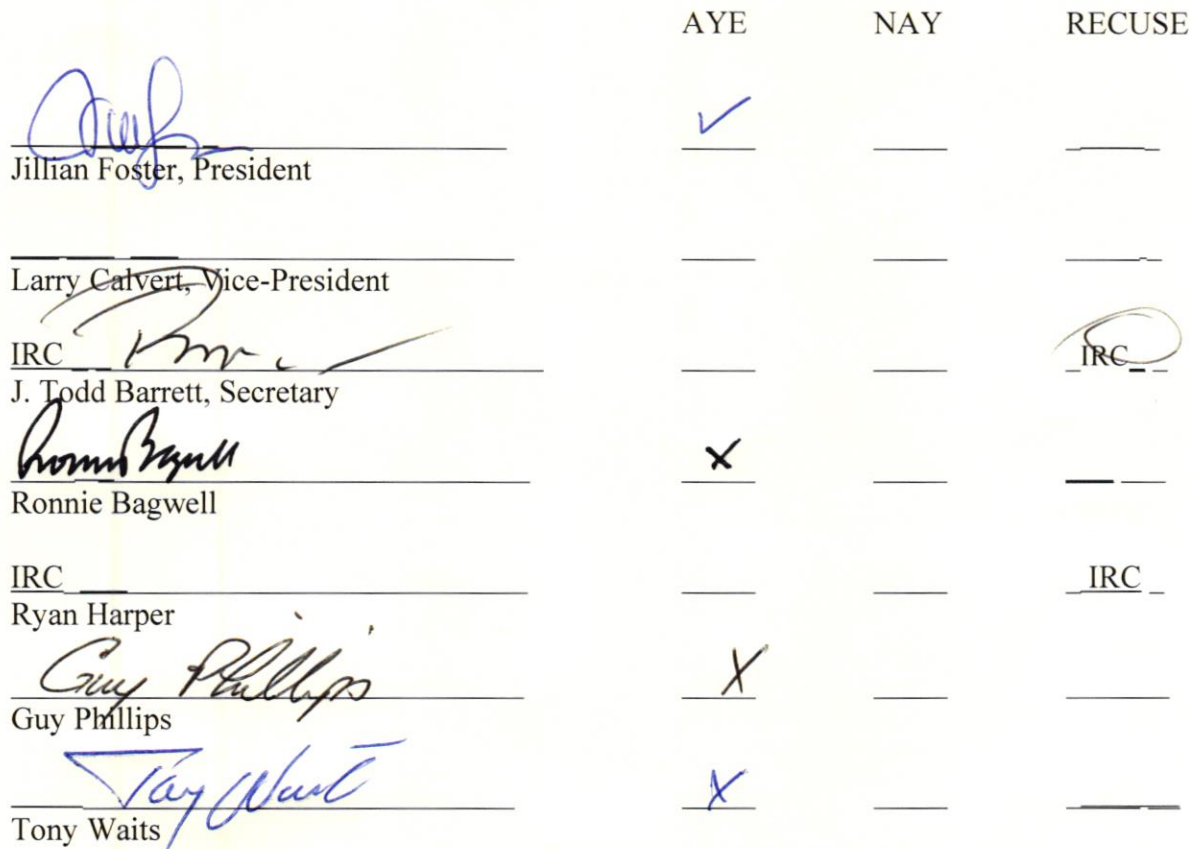 AYE NAY RECUSE
✓
Jillian Foster, President
Larry Calvert, Vice-President
IRC IRC
J. Todd Barrett, Secretary
Ronnie Bagwell X
Ronnie Bagwell
IRC IRC
Ryan Harper
Guy Phillips X
Guy Phillips
Tony Waits X
Tony Waits